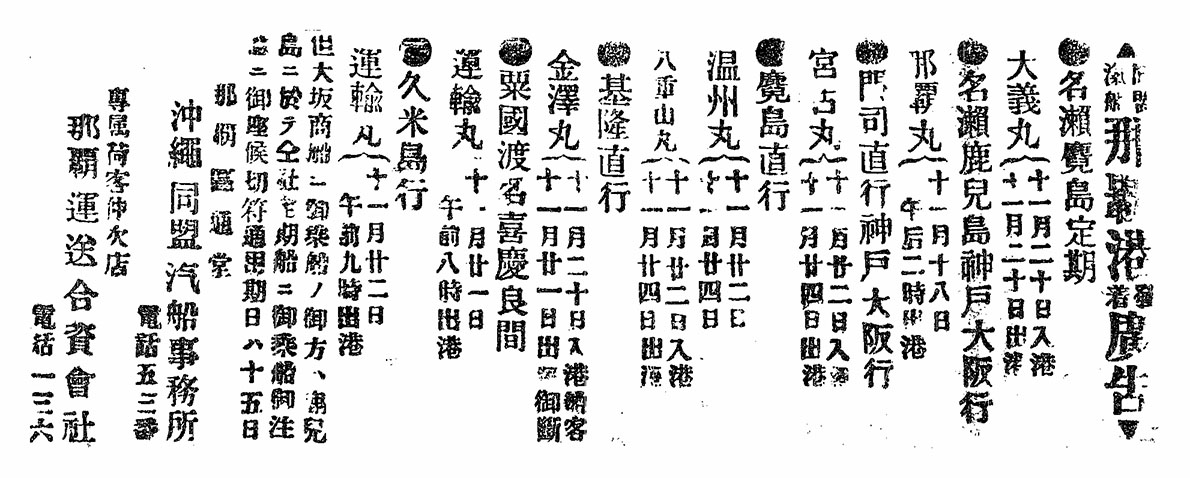 同盟汽船 那覇港發着廣告
●名瀬鹿島定期
大義丸 十一月二十日入港
十一月二十日出港
●名瀬鹿兒島神戸大阪行
那覇丸 十一月十八日
午后二時出港
●門司直行神戸大阪行
宮古丸 十一月廿二日入港
十一月廿四日出港
●鹿島直行
温州丸 十一月廿二日
十一月廿四日
八重山丸 十一月廿二日入港
十一月廿四日出港
●基隆直行
金澤丸 十一月二十日入港船客
十一月廿一日出港御斷
●粟國渡名喜慶良間
運輸丸 十一月廿一日
午前八時出港
●久米島行
運輸丸 十一月廿二日
午前九時出港
但大坂商船ニ御乘船ノ御方、鹿兒
島ニ於テ仝社定期船ニ御乘船御注
意ニ御座候切符通用期日ハ十五日
那覇區通堂
沖繩同盟汽船事務所
電話五三番
專属荷客仲次店
那覇運送合資會社
電話一三六